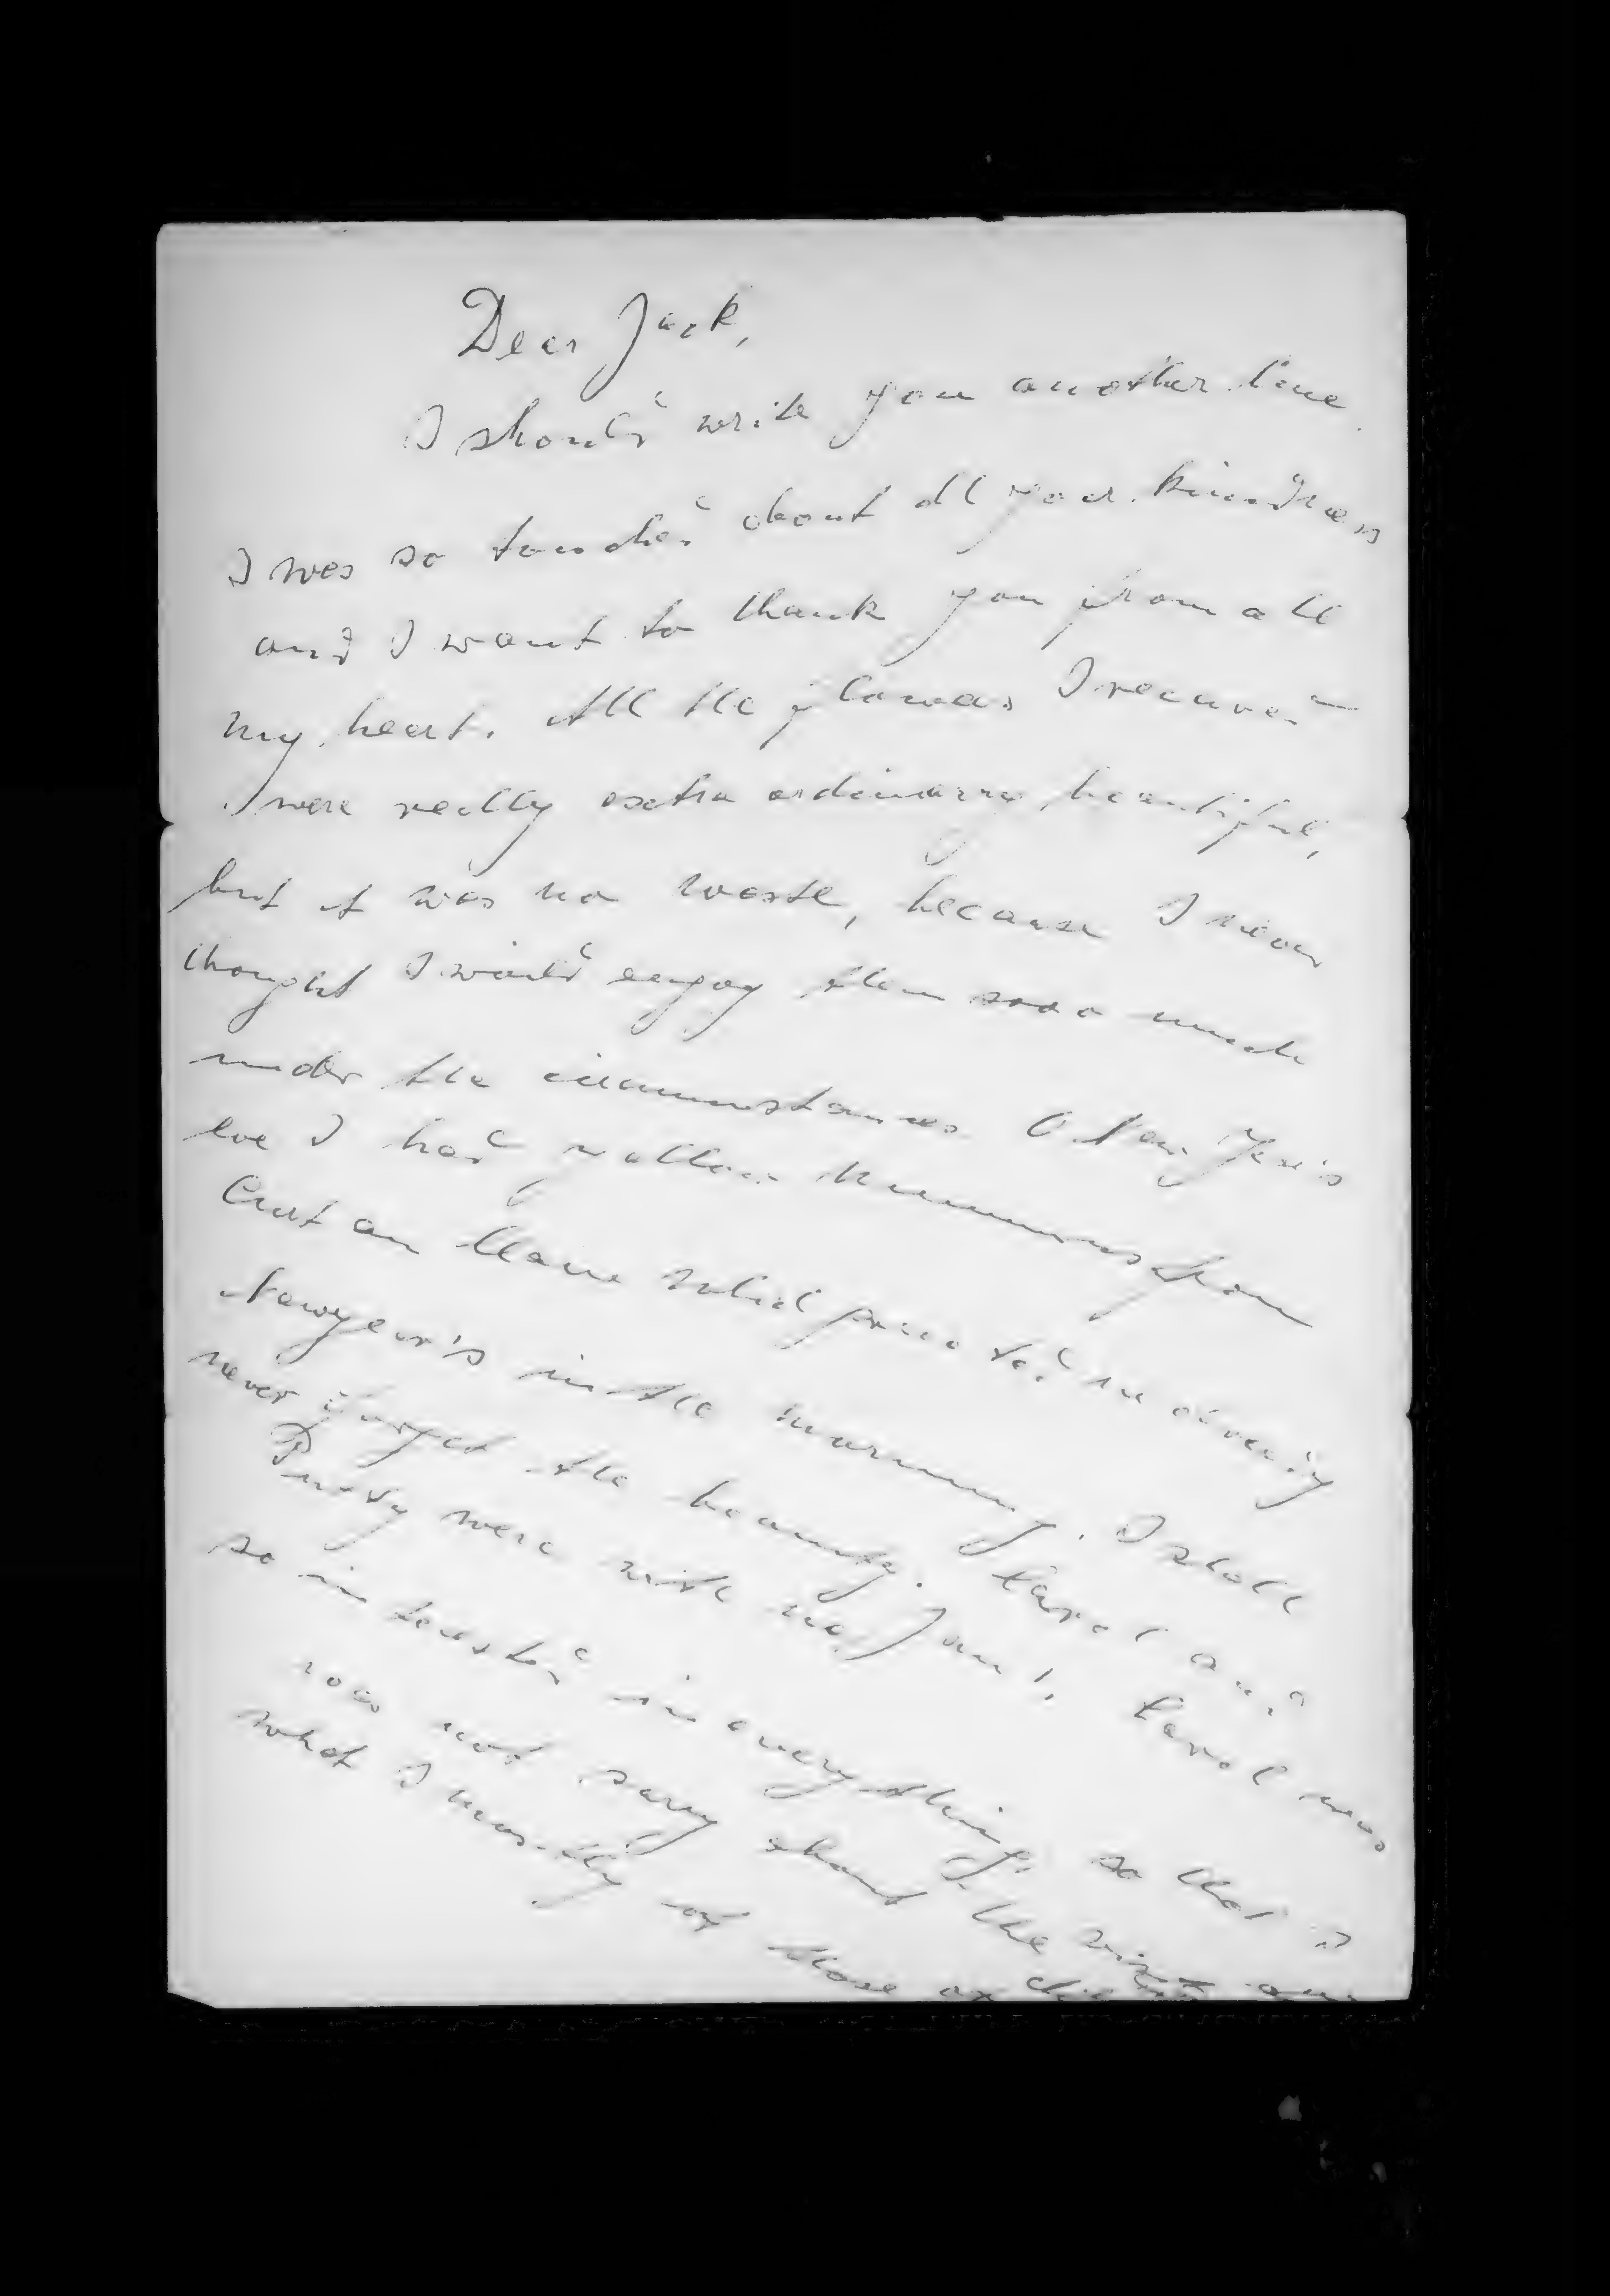 Dear Jack,
I should write you another line.
I was so touched about all your kindness
and I want to thank you from all
my heart. All the flowers I received
were really extra ordinary beautiful,
but it was no waste, because I never
thought I would enjoy them sooo much
under the circumstances. O New Year's
eve I had yellow from
Curt an Claire which me already
Newyear's in the morning. I shall
never forget the beauty. Karel and
Putty were with me, Jane!. Karel was
so interested in everything, so that I
was not sorry about the
what I mostly of those